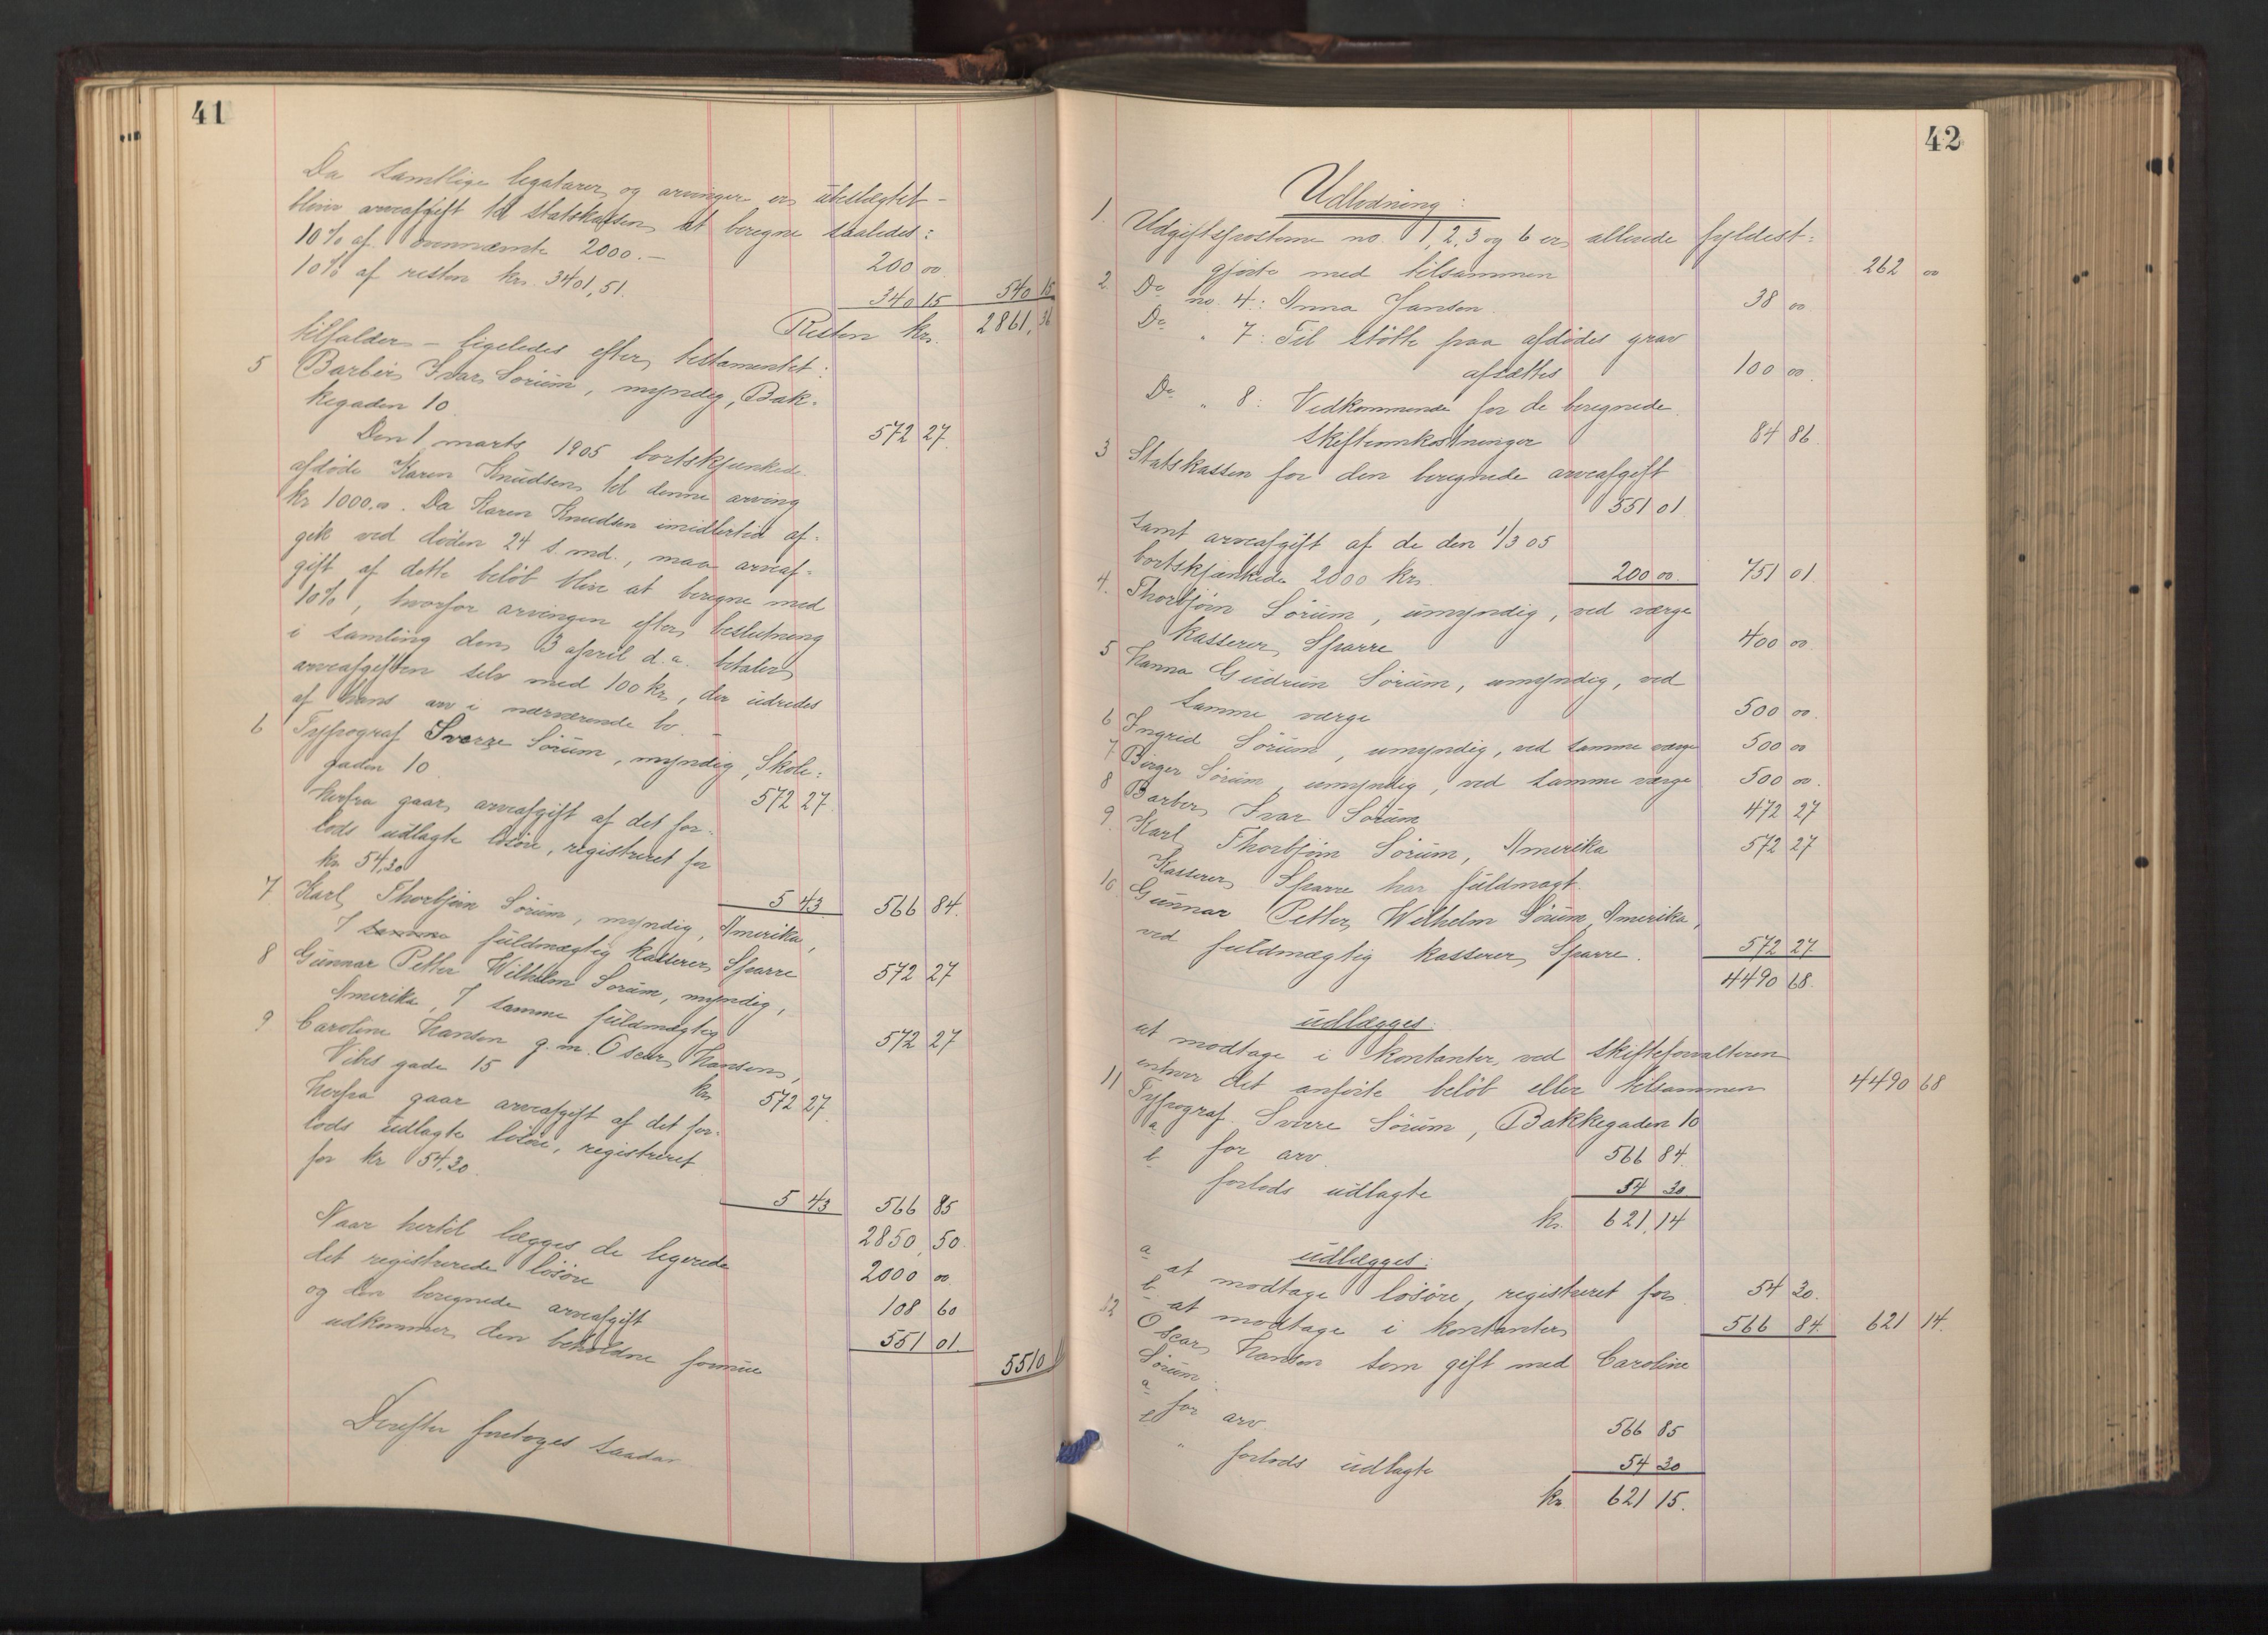 41
Da samtlige legatarer og arvinger er ubeslægtet –
bliver arveafgift til statskassen at beregne saaledes:
10% af ovennævnte 2000.– 200 00
10% af resten kr. 3401,51. 340 15 540 15
Resten kr. 2861,36
tilfalder – ligeledes efter testamentet:
5 Barber Ivar Sörum, myndig, Bak-
kegaden 10 572 27
Den 1 marts 1905 bortskjænkede
afdøde Karen Knudsen til denne arving
kr 1000.00. Da Karen Knudsen imidlertid af-
gik ved døden 24 s. md., maa arveaf-
gift af dette beløb blive at beregne med
10%, hvorfor arvingen efter beslutning
i samling den 3 april d.a. betaler
arveafgiften selv med 100 kr, der udredes
af hans arv i nærværende bo. –
6 Typograf Sverre Sörum, myndig, Skole-
gaden 10 572 27
Herfra gaar arveafgift af det for-
lods udlagte løsøre, registreret for
kr 54,30 5 43 566 84
7 Karl Thorbjørn Sörum, myndig, Amerika,
7 samme fuldmægtig kasserer Sparre 572 27
8 Gunnar Petter Wilhelm Sorum, myndig,
Amerika, 7 samme fuldmægtig 572 27
9 Caroline Hansen g. m. Oscar Hansen,
Vibes gade 15 kr 572 27
Herfra gaar arveafgift af det for-
lods udlagte løsøre, registreret
for kr 54,30. 5 43 566 85
2850,50
Naar hertil lægges de legerede 2000 00
det registrerede løsøre 108 60
og den beregnede arveafgift 551 01
udkommer den beholdne formue 5510
Derefter foretoges saadan
42
Udlodning:
1. Udgiftsposterne no. 1, 2, 3 og 6 er allerede fyldest-
gjorte med tilsammen 262 00
2. Do no. 4: Anna Jansen 38 00
Do " 7: Til støtte paa afdødes grav
afsættes 100 00
Do " 8: Vedkommende for de beregnede
skifteomkostninger 84 86
3 Statskassen for den beregnede arveafgift
551 01
samt arveafgift af de den 1/3 05
bortskjænkede 2000 kr. 200 00 751 01
4. Thorbjörn Sörum, umyndig, ved værge
kasserer Sparre 400 00
5 Hanna Gudrun Sörum, umyndig, ved
samme værge 500 00
6 Ingrid Sörum, umyndig, ved samme værge 500 00
7 Birger Sörum, umyndig, ved samme værge 500 00
8 Barber Ivar Sörum 472 27
9. Karl Thorbjörn Sörum, Amerika 572 27
Kasserer Sparre har fuldmagt.
10 Gunnar Petter Wilhelm Sörum, Amerika,
ved fuldmægtig kasserer Sparre. 572 27
4490 68
udlægges:
at modtage i kontanter, ved skifteforvalteren
enhver det anførte beløb eller tilsammen 4490 68
11 Typograf Sverre Sörum, Bakkegaden 10
a for arv 566 84
b forlods udlagte 54 30
kr. 621,14
udlægges:
a at modtage løsøre, registreret for 54 30
b at modtage i kontanter 566 84 621 14
12 Oscar Hansen som gift med Caroline
Sörum.
a for arv 566 85
b " forlods udlagte 54 30
kr. 621 15.